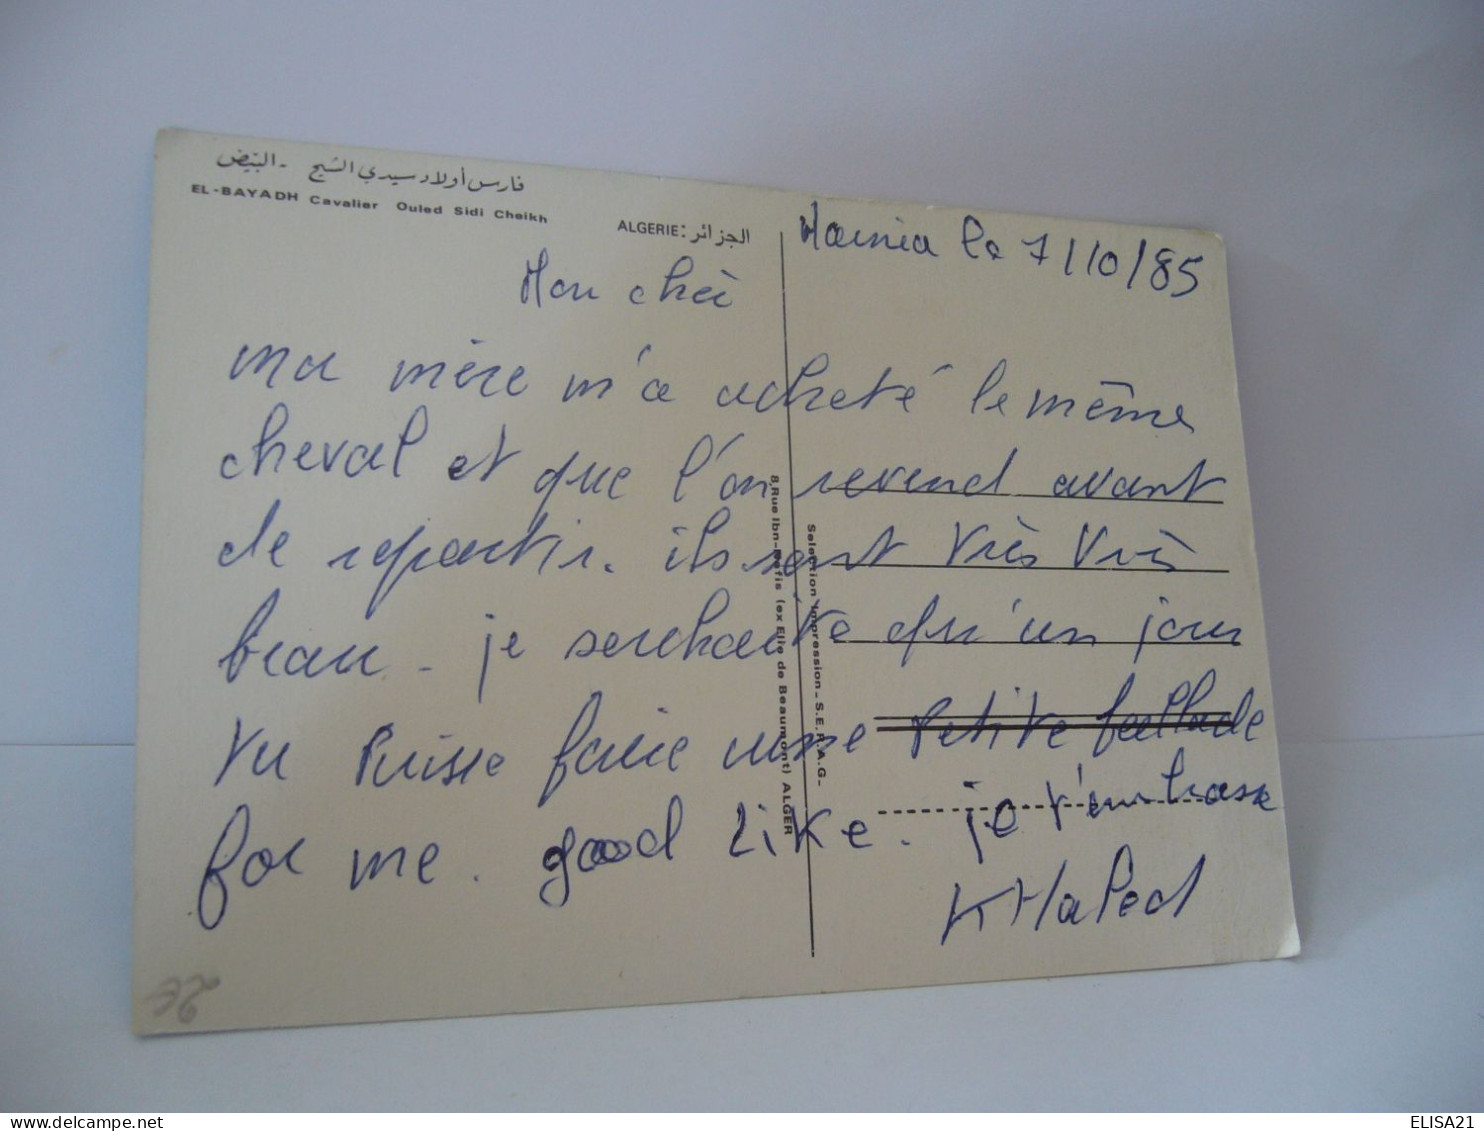 فارس أولاد سيدي الشيخ - البيّض
EL-BAYADH Cavalier Ouled Sidi Cheikh
ALGERIE: الجزائر
le 7/10/85
Mon cher
ma mère m'a acheté le même
cheval et que l'on revend avant
de repartir. ils sont très très
beau - je serchaite qu'un jour
tu Puisse faire une Petite ballade
for me. good like. je t'embrasse
KHaled
Selection Impression - S.E.R.A.G-
8, Rue Ibn-Nafis (ex Elie de Beaumont) ALGER
2€
ELISA21